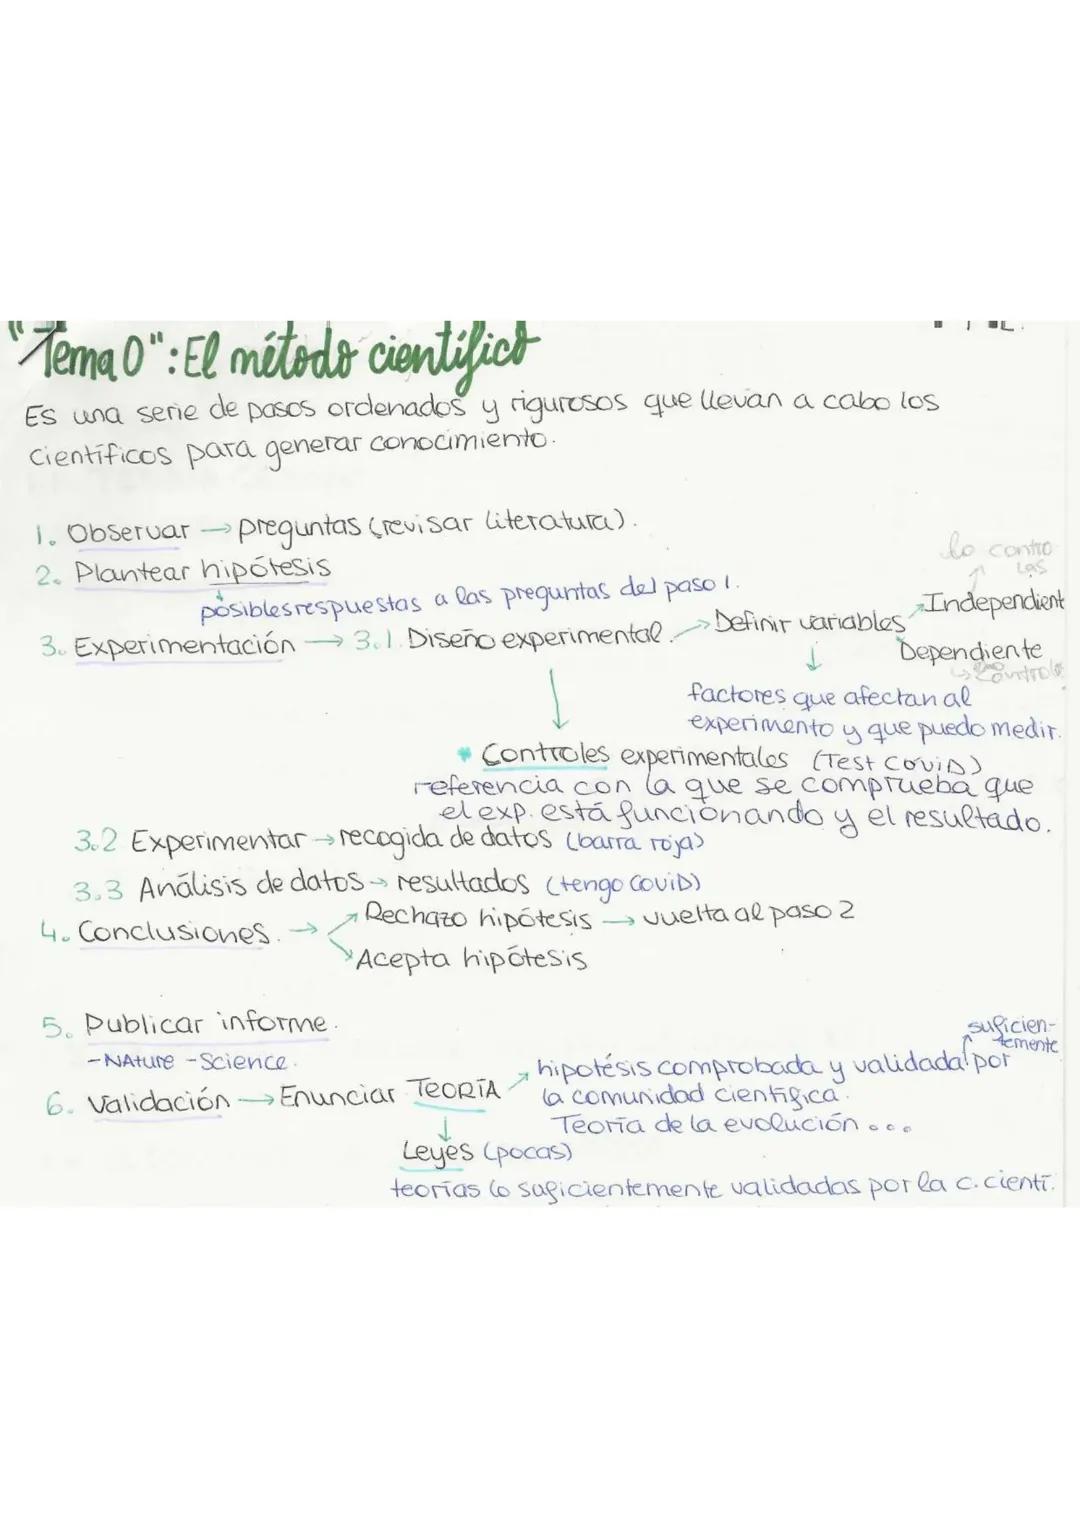 "Tema 0": El método científico
Es una serie de pasos ordenados y rigurosos que llevan a cabo los
científicos para generar conocimiento.
1. Observar → preguntas (revisar literatura).
2. Plantear hipótesis
↓
posibles respuestas a las preguntas del paso 1.
lo contro
las
3. Experimentación → 3.1. Diseño experimental. → Definir variables
Independient
Dependiente
↓
factores que afectan al
experimento y que puedo medir.
↓
* Controles experimentales (Test CoviD)
referencia con la que se comprueba que
el exp. está funcionando y el resultado.
3.2 Experimentar → recogida de datos (barra roja)
3.3 Análisis de datos → resultados (tengo CoviD)
4. Conclusiones. →
Rechazo hipótesis → vuelta al paso 2
Acepta hipótesis
5. Publicar informe.
- NAture - Science.
6. Validación → Enunciar TEORÍA
suficien-
temente
hipotésis comprobada y validada por
la comunidad científica.
Teoría de la evolución ...
↓
Leyes (pocas)
teorías lo suficientemente validadas por la c. cientí.